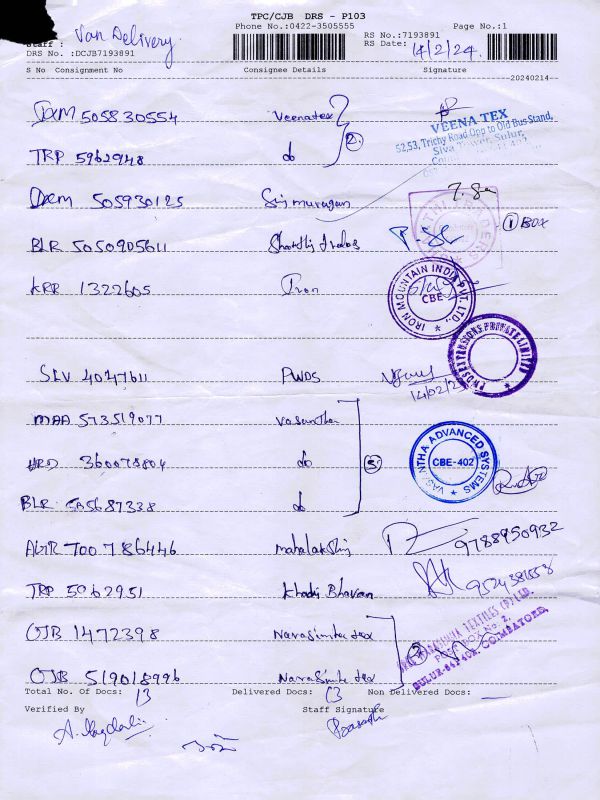 TPC/CJB DRS - P103
Phone No.:0422-3505555 Page No.:1
RS No.:7193891
Staff : Van Delivery RS Date: 14/2/24
DRS No. :DCJB7193891
S No Consignment No Consignee Details Signature
20240214
505830554 Veenatex 2
VEENA TEX
52,53, Trichy Road Opp to Old Bus Stand,
Siva Tower, Sulur,
TRP 5962948 do
505930125 Sri murugan
BLR 5050905611 1 BOX
KRR 1322605 Iron
IRON MOUNTAIN INDIA PVT. LTD., CBE
PRIVATE LIMITED
SLV 4047611 PWDS
14/02/24
MAA 573519077 Vasantha
HRD 360078804 do 3
VASANTHA ADVANCED SYSTEMS CBE-402
BLR 585687338 do
700786446 mahalakshmi 9788950932
TRP 5962951 Khadi Bhavan
OJB 1472398 Narasimha tex
NARASIMHA TEXTILES (P) LTD.
POST BOX No. 2,
SULUR-641 402. COIMBATORE.
OJB 519018996 Narasimha tex
Total No. Of Docs: 13 Delivered Docs: 13 Non Delivered Docs:
Verified By Staff Signature
Prasath